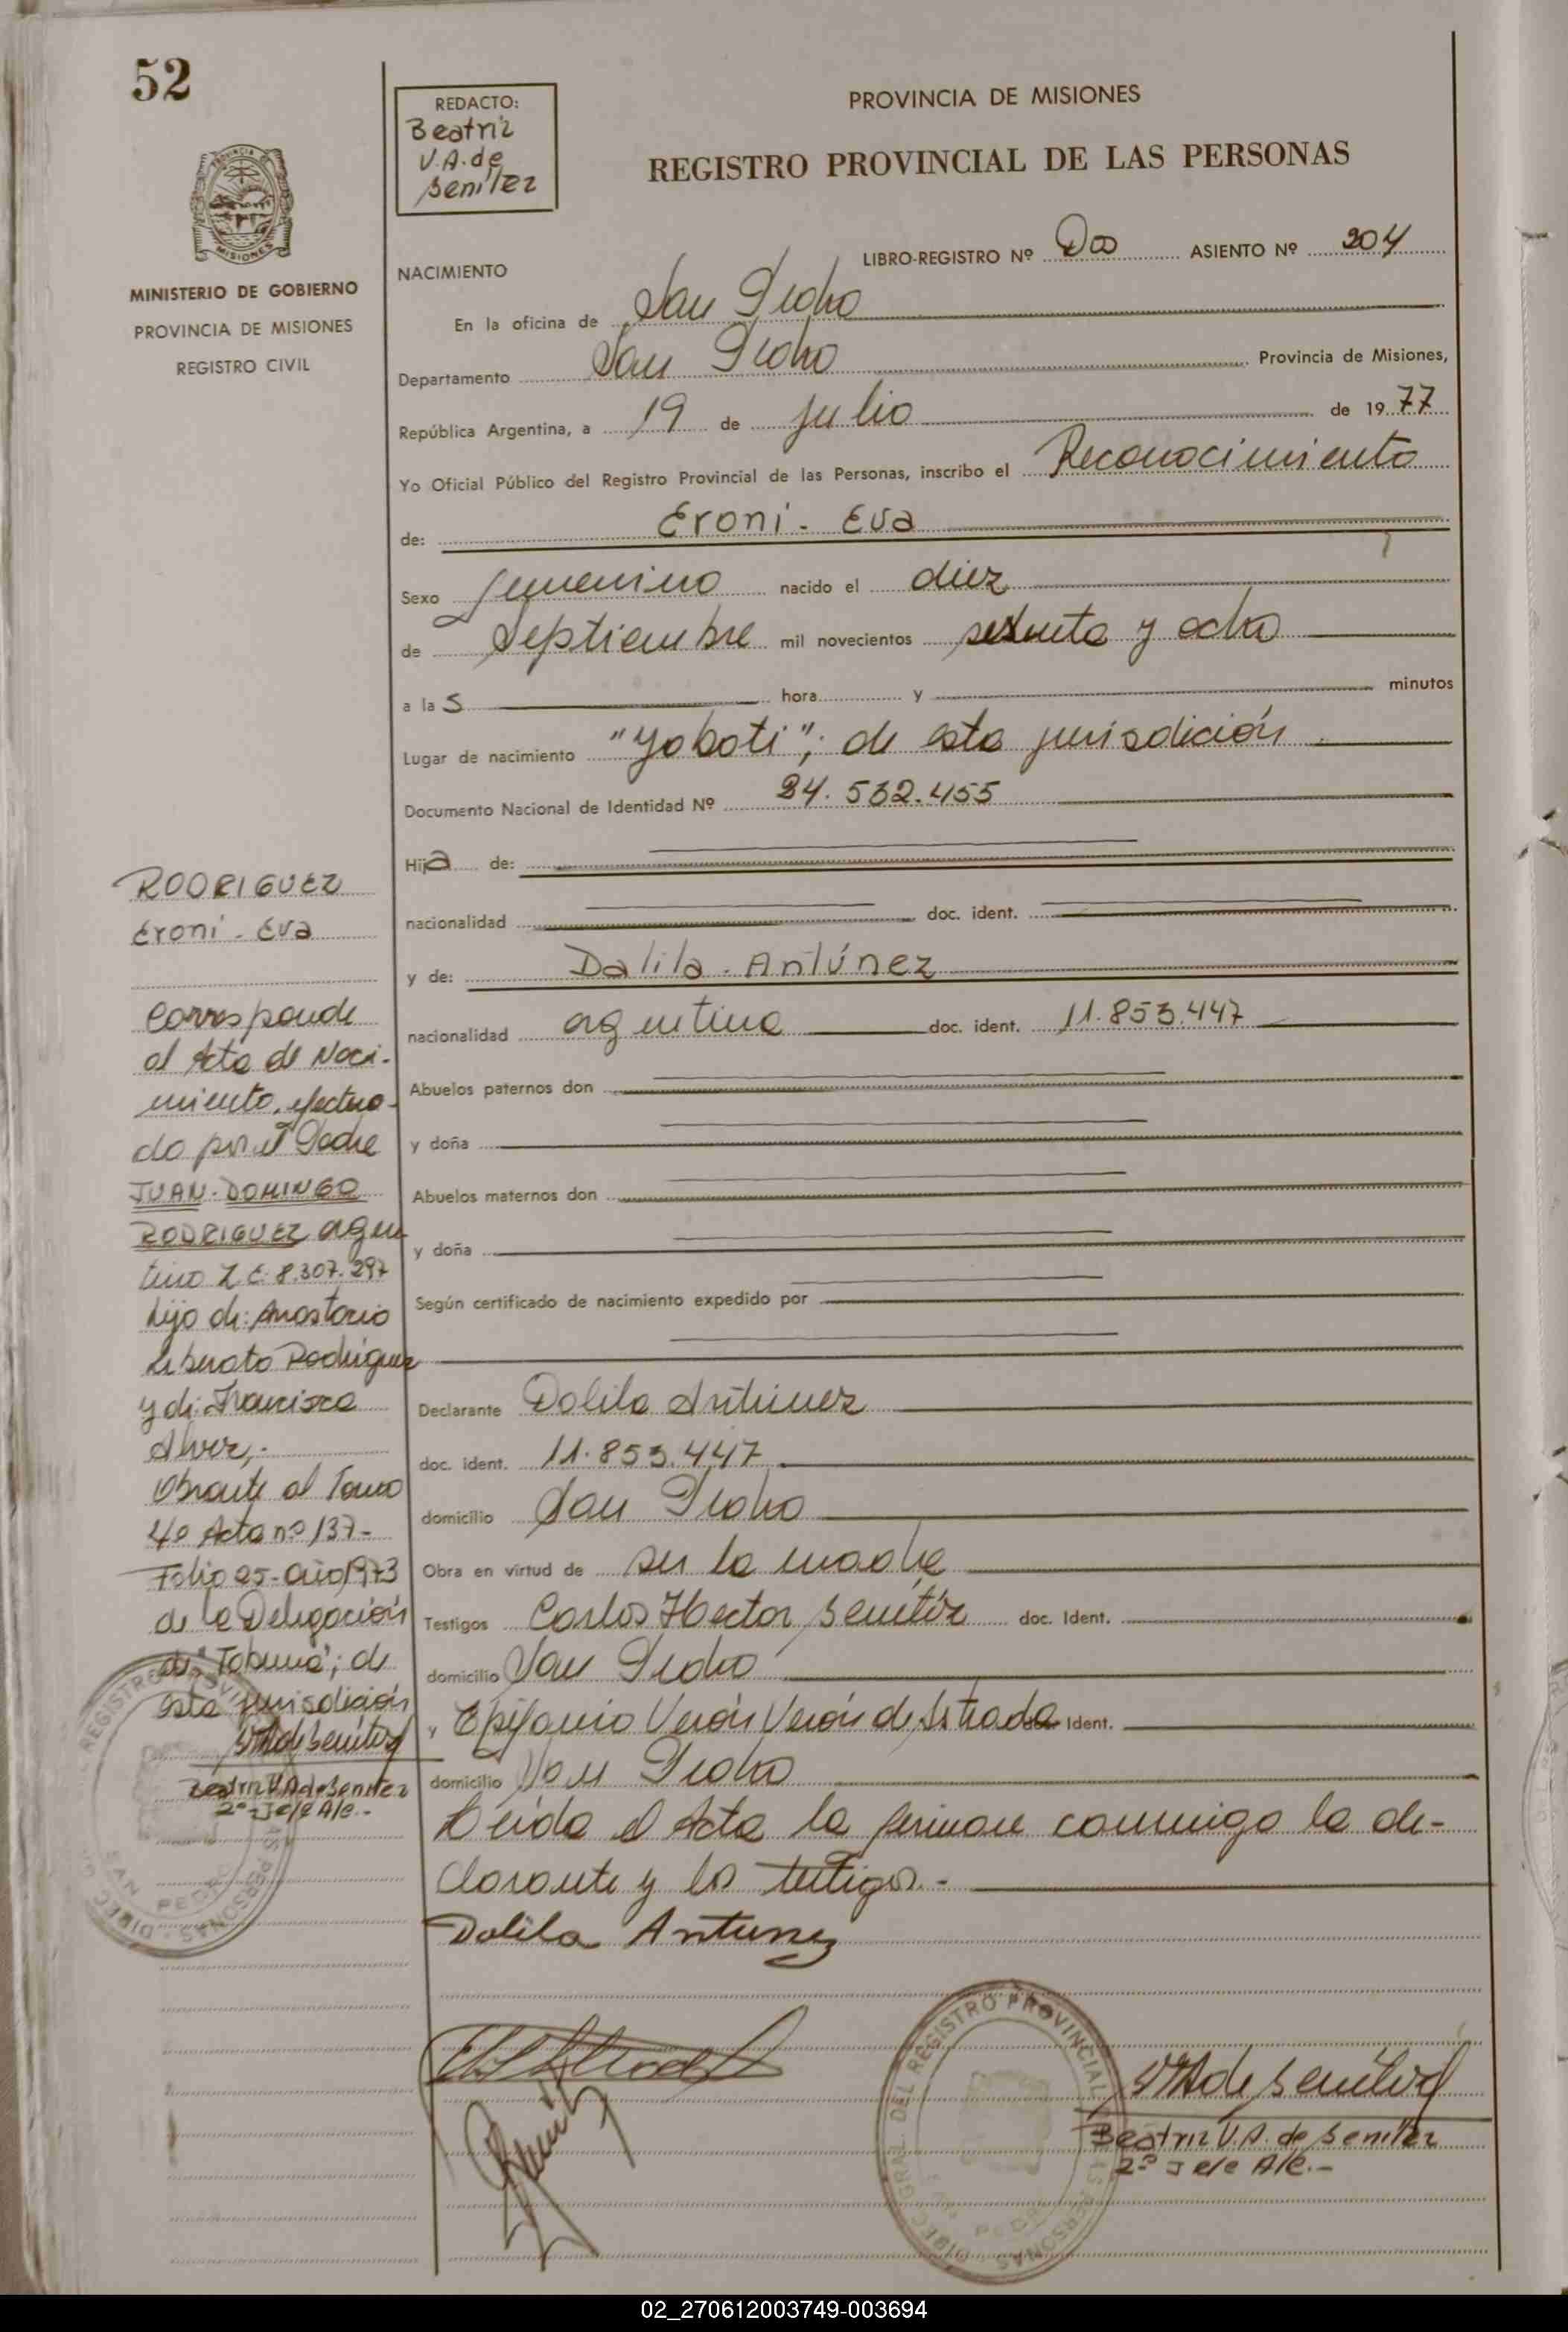 52
MINISTERIO DE GOBIERNO
PROVINCIA DE MISIONES
REGISTRO CIVIL
REDACTO:
Beatriz
V.A. de
Benítez
PROVINCIA DE MISIONES
REGISTRO PROVINCIAL DE LAS PERSONAS
LIBRO-REGISTRO Nº Dos ASIENTO Nº 204
NACIMIENTO
En la oficina de San Pedro
Departamento San Pedro Provincia de Misiones,
República Argentina, a 19 de julio de 1977
Yo Oficial Público del Registro Provincial de las Personas, inscribo el Reconocimiento
de: Eroni - Eva
Sexo femenino nacido el diez
de Septiembre mil novecientos y ocho
a las hora y minutos
Lugar de nacimiento "Yabotí"; de esta jurisdición
Documento Nacional de Identidad Nº 24.532.455
Hija de:
nacionalidad doc. ident.
y de: Dalila - Antúnez
nacionalidad argentina doc. ident. 11.853.447
Abuelos paternos don
y doña
Abuelos maternos don
y doña
Según certificado de nacimiento expedido por
Declarante Dalila Antúnez
doc. ident. 11.853.447
domicilio San Pedro
Obra en virtud de ser la madre
Testigos Carlos Hector Benítez doc. Ident.
domicilio San Pedro
y Epifanio Verón Verón de Estrada Ident.
domicilio San Pedro
Leída el Acta la firman conmigo la de-
clarante y los testigos.-
Dalila Antunez
Beatriz V.A. de Benítez
2º Jefe A/c.-
RODRIGUEZ
Eroni - Eva
Corresponde
al Acta de Naci-
miento, efectua-
do por el Padre
JUAN - DOMINGO
RODRIGUEZ argen
tino L.E. 8.307.297
hijo de: Anastacio
Liberato Rodriguez
y de: Francisca
Alvez,-
Obrante al Tomo
4º Acta nº 137-
Folio 25 - año 1973
de la Delegación
de "Tobuna"; de
esta jurisdición
Beatriz V.A de Benítez
2º Jefe A/c.-
DIREC. GRAL. DEL REGISTRO PROVINCIAL DE LAS PERSONAS
SAN PEDRO
02_270612003749-003694